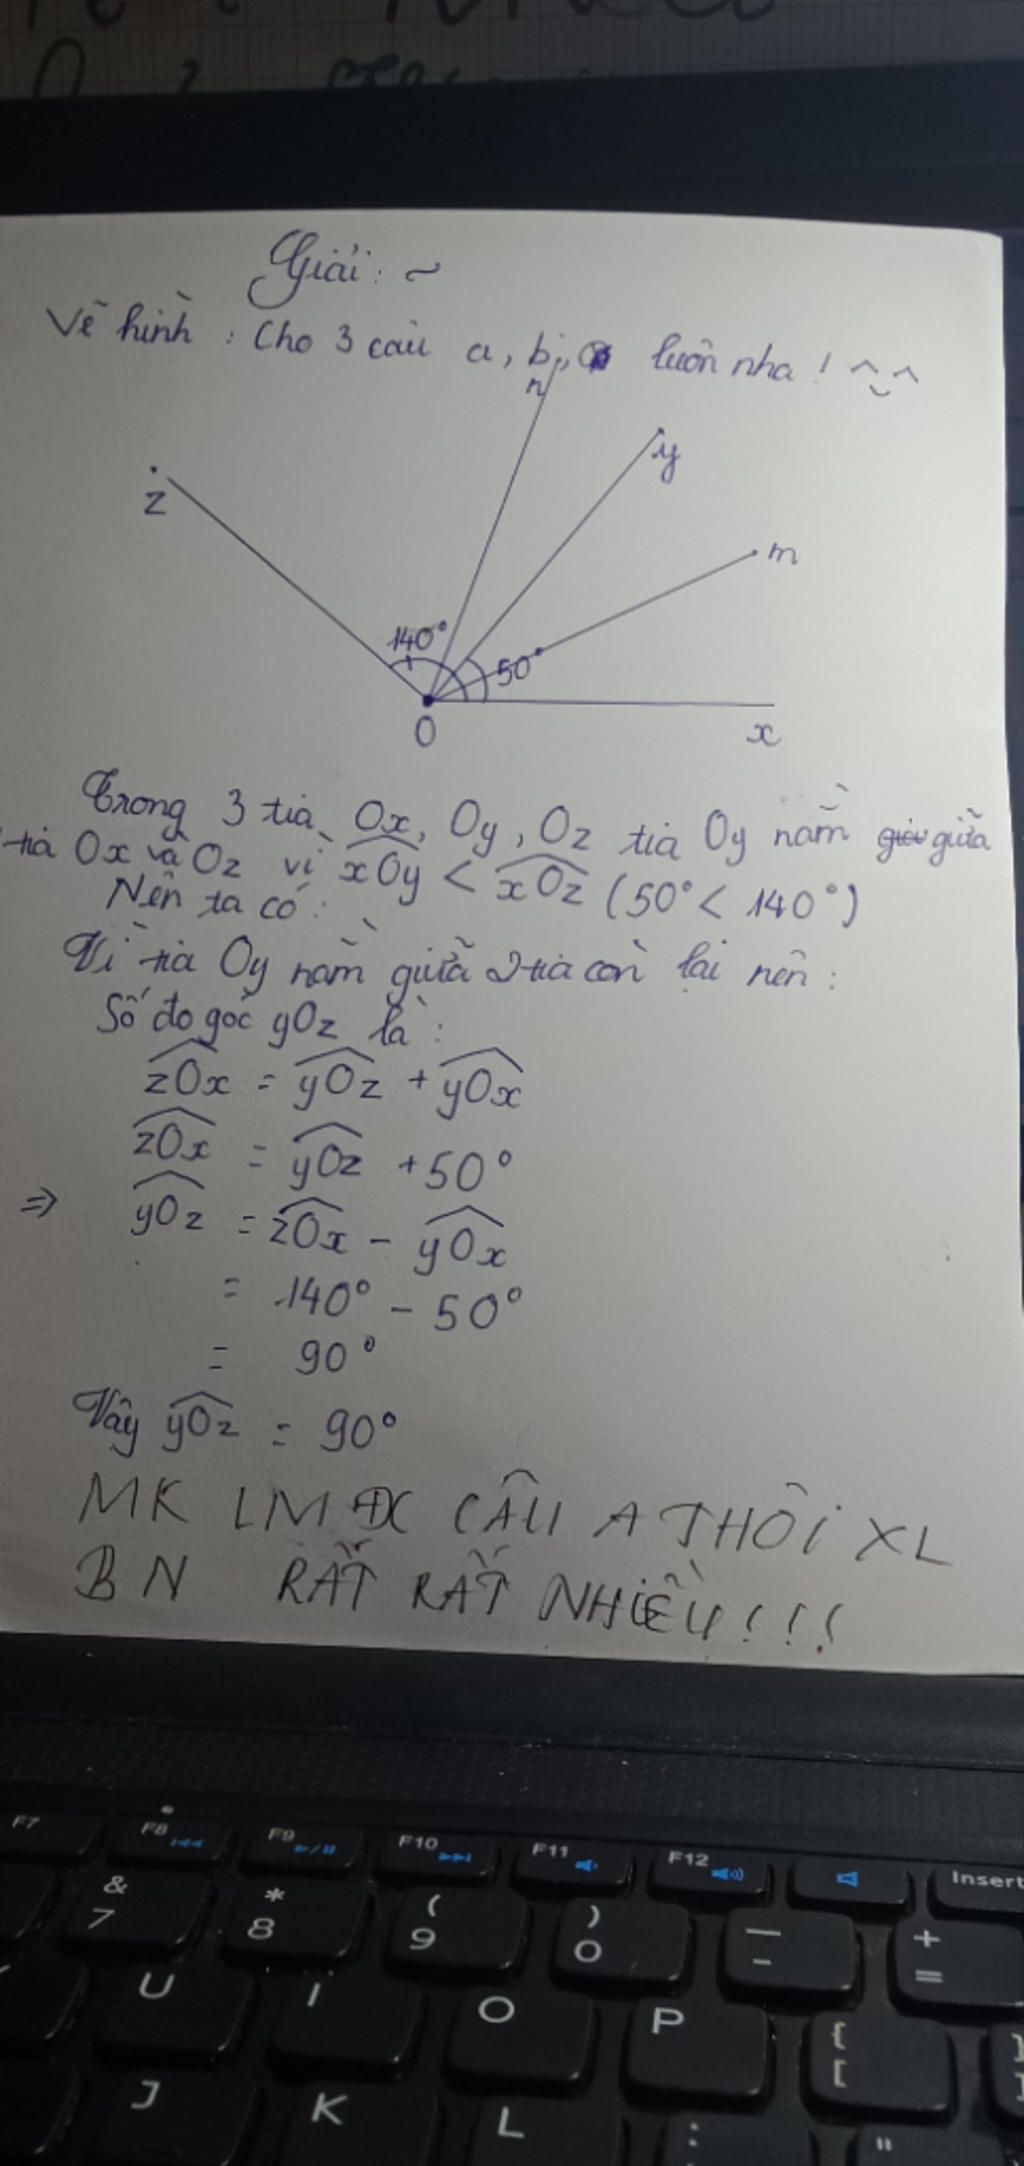 Giải: ~
Vẽ hình : Cho 3 câu a, b, luôn nha ! ^_^
n
y
z
m
140°
50°
O
x
Trong 3 tia Ox, Oy, Oz tia Oy nằm giữa
tia Ox và Oz vì xOy < xOz (50° < 140°)
Nên ta có :
Vì tia Oy nằm giữa 2 tia còn lại nên :
Số đo góc yOz là :
zOx = yOz + yOx
zOx = yOz + 50°
⇒ yOz = zOx - yOx
= 140° - 50°
= 90°
Vậy yOz = 90°
MK LM ĐC CÂU A THÔI XL
BN RẤT RẤT NHIỀU!!!
F7 F8 F9 F10 F11 F12 Insert
& * ( ) — +
7 8 9 0 - =
U I O P { [ } ]
J K L : "